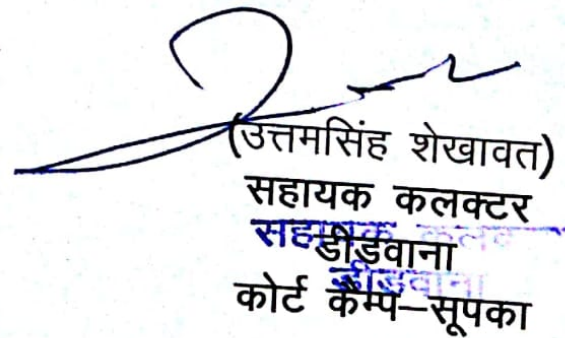 (उत्तमसिंह शेखावत)
सहायक कलक्टर
सहायक कलक
डीडवाना
डीडवाना
कोर्ट कैम्प–सूपका